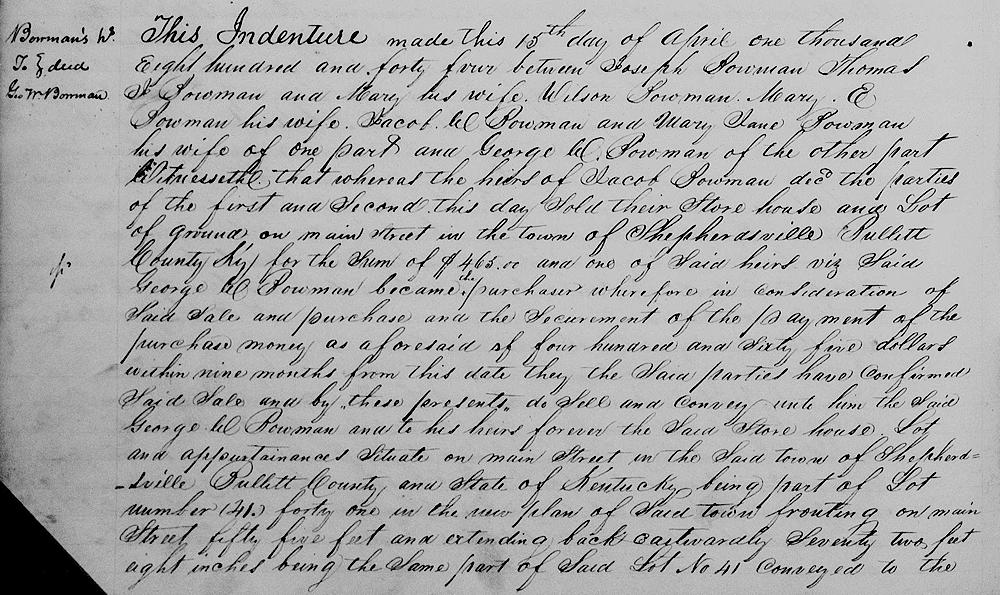 Bowman's hs
To } deed
Geo W. Bowman
This Indenture made this 15th day of April one thousand
Eight hundred and forty four between Joseph Bowman Thomas
J Bowman and Mary his wife. Wilson Bowman. Mary. E
Bowman his wife. Jacob W Bowman and Mary Jane Bowman
his wife of one part and George W. Bowman of the other part
Witnesseth. that whereas the heirs of Jacob Bowman decd the parties
of the first and Second this day Sold their Store house and Lot
of ground on main street in the town of Shepherdsville Bullitt
County Ky for the Sum of $465.00 and one of Said heirs viz Said
George W Bowman became the purchaser wherefore in Consideration of
Said Sale and purchase and the Securement of the payment of the
purchase money as aforesaid of four hundred and Sixty five dollars
within nine months from this date they the Said parties have Confirmed
Said Sale and by "these presents" do Sell and Convey unto him the Said
George W Bowman and to his heirs forever the Said Store house, Lot
and appurtainances Situate on main Street in the Said town of Shepherd=
-sville Bullitt County and State of Kentucky being part of Lot
number (41.) forty one in the new plan of Said town fronting on main
Street, fifty five feet and extending back eastwardly Seventy two feet
eight inches being the Same part of Said Lot No 41 Conveyed to the